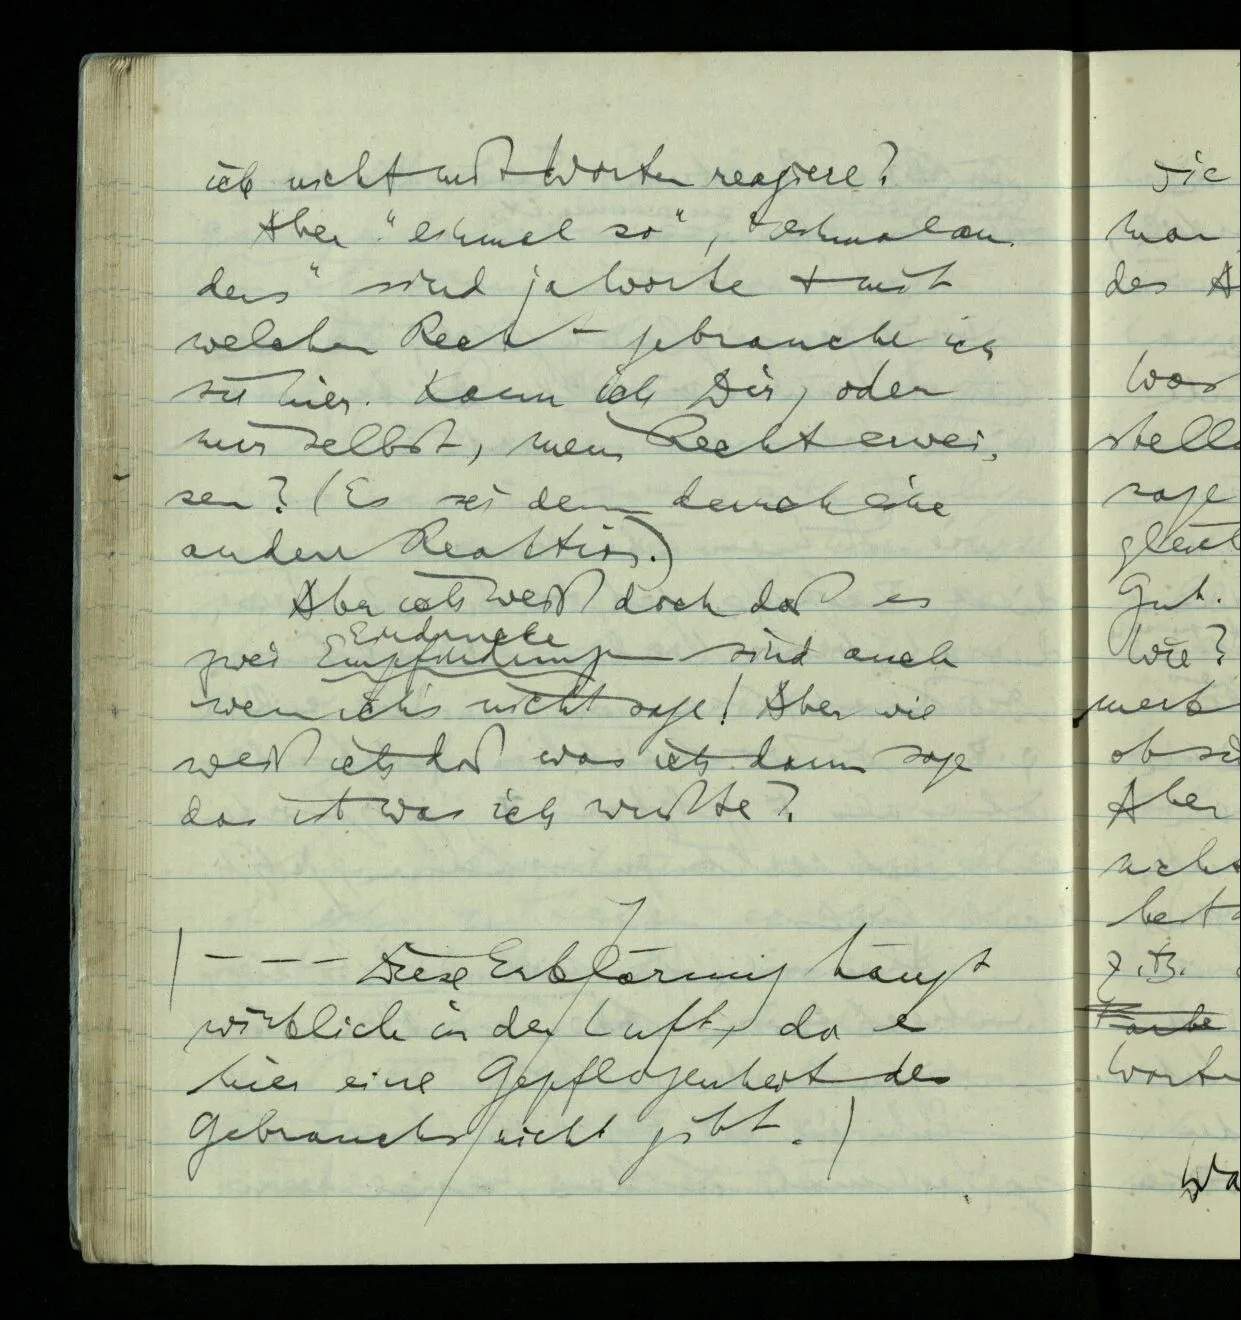 ich nicht mit Worten reagiere?
Aber "einmal so", "einmal an-
ders" sind ja Worte + mit
welchem Recht gebrauche ich
sie hier. Kann ich Dir, oder
mir selbst, mein Recht erwei-
sen? (Es sei denn durch eine
andere Reaktion.)
Aber ich weiß doch daß es
Eindrücke
zwei Empfindungen sind auch
wenn ich's nicht sage! Aber wie
weiß ich daß was ich dann sage
das ist was ich wußte?
| – – – Diese Erklärung hängt
wirklich in der Luft, da es
hier eine Gepflogenheit des
Gebrauchs nicht gibt. |
Sie
man
des A
Was
stelle
sage
gleich
Gut.
Wie?
merk
ob si
Aber
nicht
z.B.
Farbe
Worte
Wa